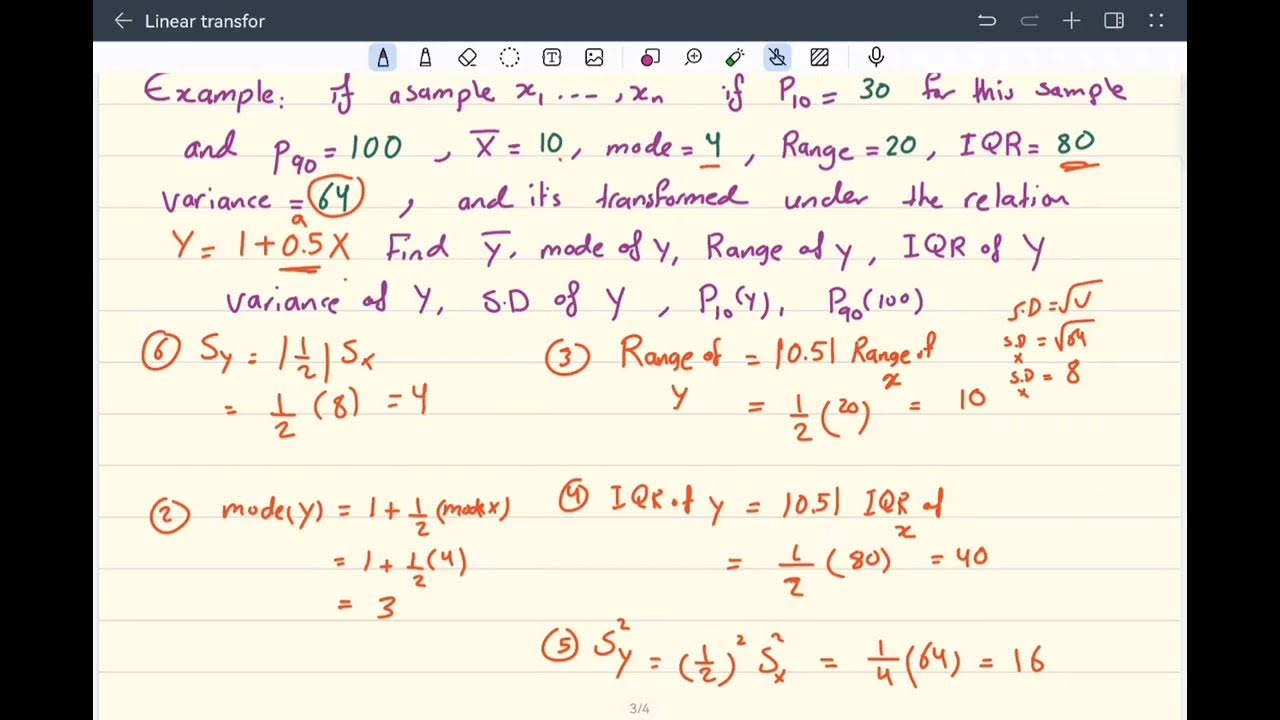 Linear transfor
Example: if a sample x₁ ...., xn if P₁₀ = 30 for this sample
and P₉₀ = 100 , X̅ = 10, mode = 4 , Range = 20 , IQR = 80
variance = 64 , and its transformed under the relation
a
Y = 1 + 0.5 X Find Y̅, mode of y, Range of y , IQR of Y
variance of Y, S.D of Y , P₁₀(Y), P₉₀(100)
S.D = √V
S.D x = √64
S.D x = 8
⑥ Sy = |1/2| Sx
= 1/2 (8) = 4
③ Range of y = |0.5| Range of x
= 1/2 (20) = 10
② mode(y) = 1 + 1/2 (mode x)
= 1 + 1/2 (4)
= 3
④ IQR of y = |0.5| IQR of x
= 1/2 (80) = 40
⑤ S²y = (1/2)² S²x = 1/4 (64) = 16
3/4